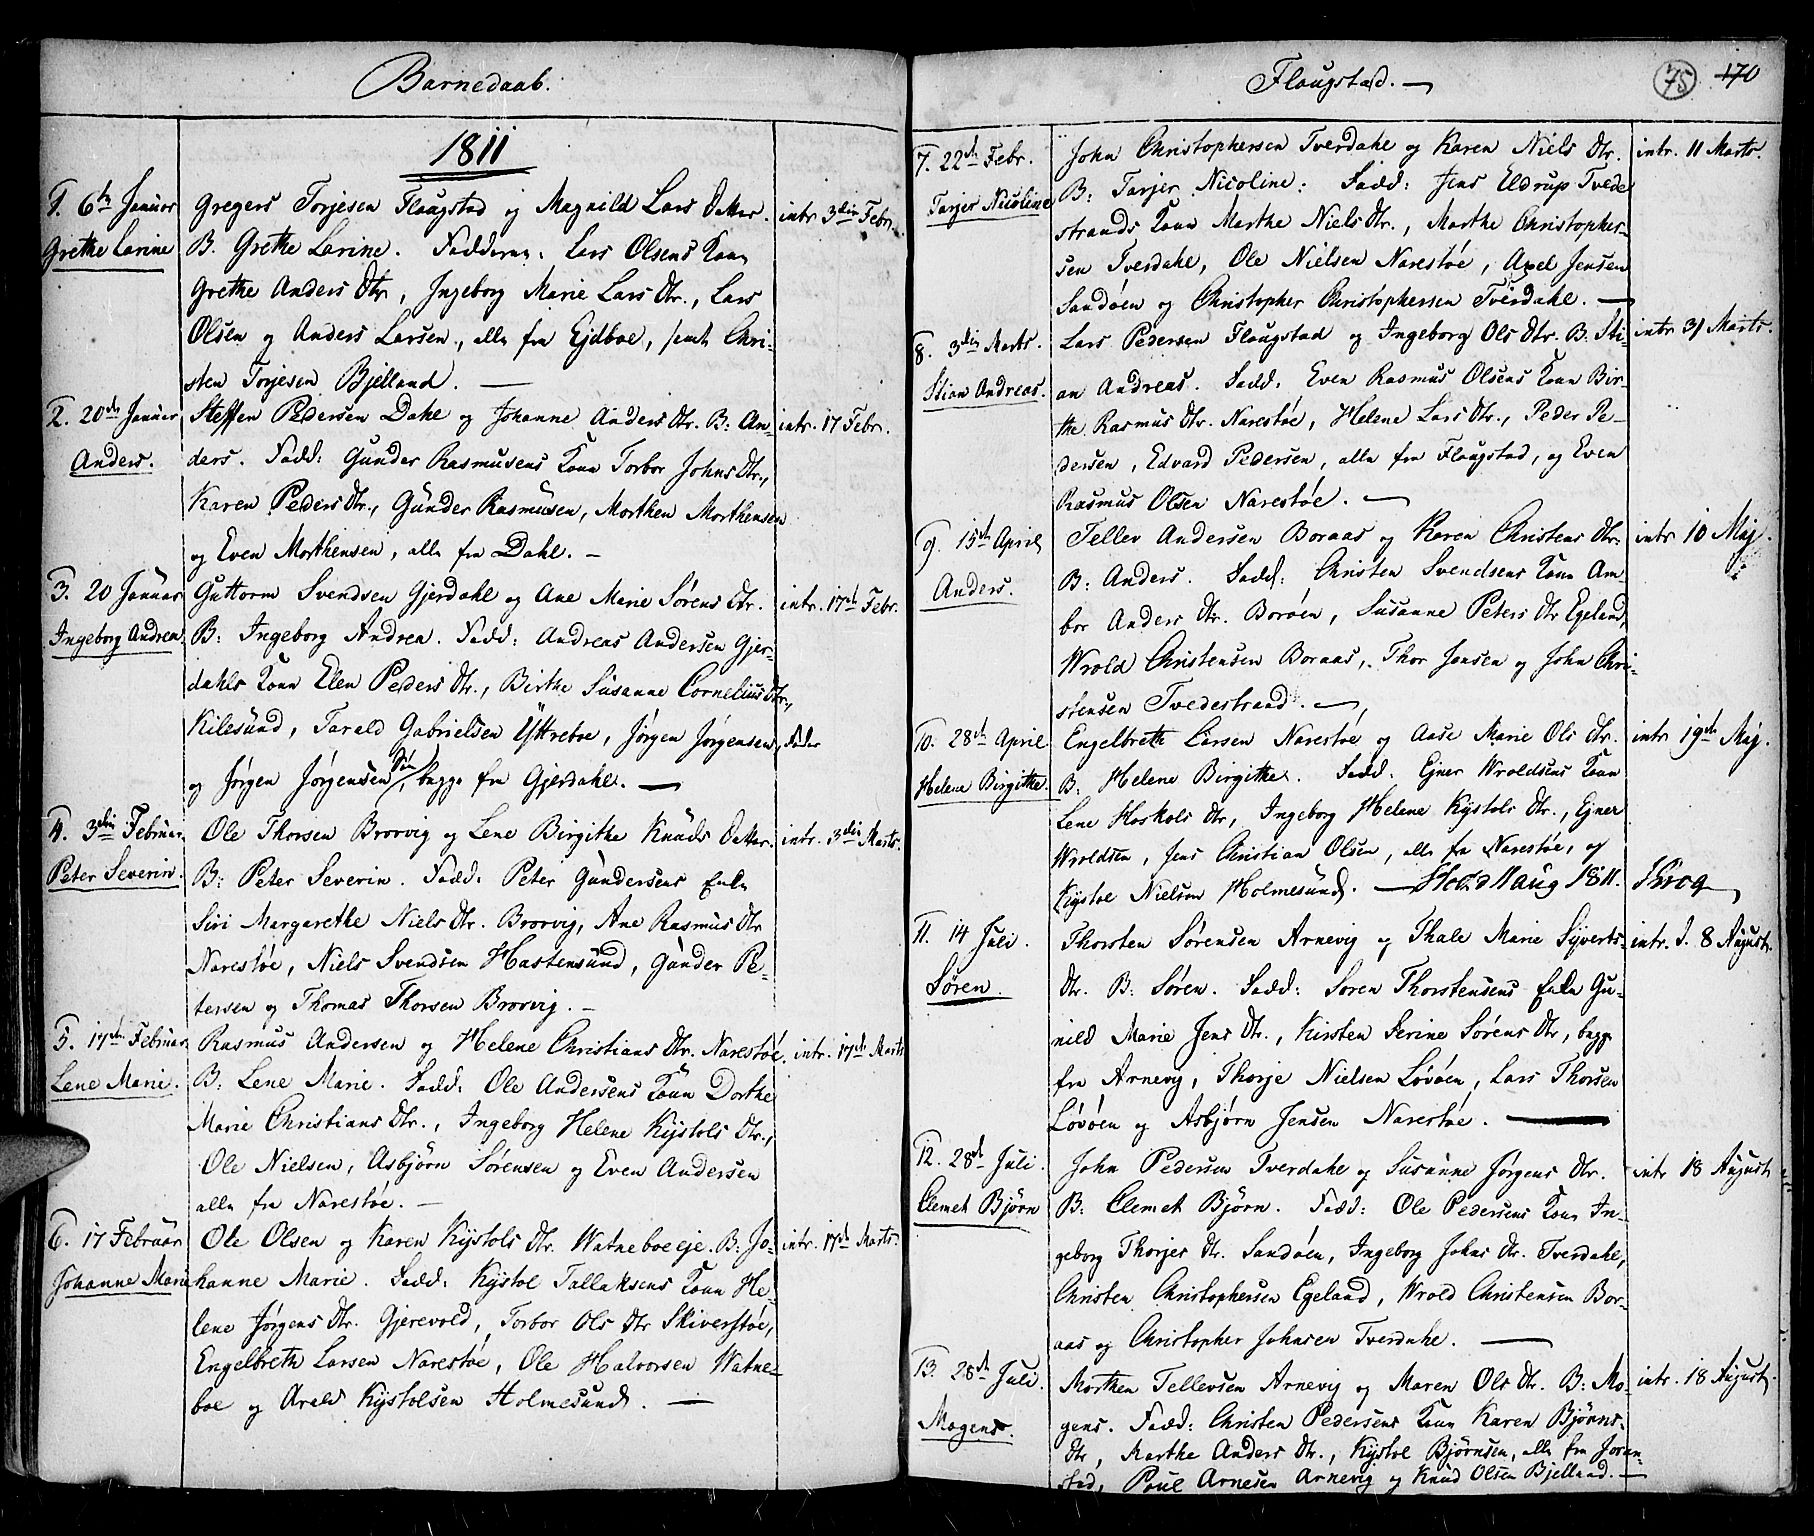 Barnedaab.
1811
1. 6te Januar
Grethe Larine
Gregers Torjesen Flougstad og Magnild Lars Datter.
B. Grethe Larine. Fadderne: Lars Olsens Kone
Grethe Anders Dtr, Ingeborg Marie Lars Dtr., Lars
Olsen og Anders Larsen, alle fra Ejdboe, samt Chri-
sten Torjesen Bjelland. —
intr. 3die Febr.
2. 20de Januar
Anders.
Steffen Pedersen Dahl og Johanne Anders Dtr. B: An-
ders. Fadd: Gunder Rasmusens Kone Torbor Johns Dtr.,
Karen Peders Dtr., Gunder Rasmusen, Morthen Morthensen
og Even Morthensen, alle fra Dahl. —
intr. 17 Febr.
3. 20 Januar
Ingeborg Andrea
Guttorm Svendsen Gjerdahl og Ane Marie Sørens Dtr.
B: Ingeborg Andrea. Fadd: Andreas Andersen Gjer-
dahls Kone Elen Peders Dtr., Birthe Susanne Cornelius Dtr.,
Kilesund, Tarald Gabrielsen Yttreboe, Jørgen Jørgensen, Fader
og Jørgen Jørgensen Søn, begge fra Gjerdahl. —
intr. 17de Febr.
4. 3die Februar
Peter Severin.
Ole Thorsen Brorvig og Lene Birgithe Knuds Datter.
B: Peter Severin. Fadd: Peter Gundersens Enke
Siri Margarethe Niels Dtr. Brorvig, Ane Rasmus Dtr
Narestøe, Niels Svendsen Hastensund, Gunder Pe-
tersen og Thomas Thorsen Brorvig. —
intr. 3die Marts.
5. 17de Februar
Lene Marie.
Rasmus Andersen og Helene Christians Dtr. Narestøe.
B: Lene Marie. Fadd: Ole Andersens Kone Dorthe
Marie Christians Dtr., Ingeborg Helene Kystols Dtr.,
Ole Nielsen, Asbjørn Sørensen og Even Andersen
alle fra Narestøe. —
intr. 17de Marts
6. 17 Februar
Johanne Marie
Ole Olsen og Karen Kystols Dtr. Watneboeeje. B: Jo-
hanne Marie. Fadd: Kystol Tallaksens Kone He-
lene Jørgens Dtr. Gjerevold, Torbor Ols Dtr Skiverstøe,
Engelbreth Larsen Narestøe, Ole Halvorsen Watne-
boe og Arald Kystolsen Holmesund. —
intr. 17de Marts.
Flougstad. —
75 170
7. 22de Febr.
Tarjer Nicoline
John Christophersen Tverdahl og Karen Niels Dtr.
B: Tarjer Nicoline: Fadd: Jens Eldrup Tvede
strands Kone Marthe Niels Dtr., Marthe Christopher-
sen Tverdahl, Ole Nielsen Narestøe, Axel Jensen
Sandøen og Christopher Christophersen Tverdahl. —
intr. 11 Marts.
8. 3die Marts.
Stian Andreas.
Lars Pedersen Flougstad og Ingeborg Ols Dtr. B: Sti-
an Andreas. Fadd: Even Rasmus Olsens Kone Bir-
the Rasmus Dtr. Narestøe, Helene Lars Dtr., Peder Pe-
dersen, Edvard Pedersen, alle fra Flougstad, og Even
Rasmus Olsen Narestøe. —
intr 31 Marts.
9. 15de April
Anders.
Tellev Andersen Boraas og Karen Christens Dtr.
B: Anders. Fadd: Christen Svendsens Kone Am-
bor Anders Dtr. Borøen, Susanne Peters Dtr Egeland,
Wrold Christensen Boraas, Thor Jensen og John Chri-
stensen Tvedestrand. —
intr 10 Maj.
10. 28de April
Helene Birgithe.
Engelbreth Larsen Narestøe og Aase Marie Ols Dtr.
B: Helene Birgithe. Fadd: Ejner Wroldsens Kone
Lene Hoskols Dtr, Ingeborg Helene Kystols Dtr., Ejner
Wroldsen, Jens Christian Olsen, alle fra Narestøe, og
Kystol Nielsen Holmesund. — 11 Aug 1811. Krog
intr 19de Maj.
11. 14 Juli.
Søren.
Thorsten Sørensen Arnevig og Thale Marie Syverts-
Dtr. B: Søren. Fadd: Soren Thorstensens Enke Gu-
nild Marie Jens Dtr., Kirsten Serine Sørens Dtr, begge
fra Arnevig, Thorje Nielsen Løvøen, Lars Thorsen
Løvøen og Asbjørn Jensen Narestøe. —
intr. d. 8 August.
12. 28de Juli.
Clemet Bjørn
John Pedersen Tverdahl og Susanne Jørgens Dtr.
B: Clemet Bjørn. Fadd: Ole Pedersens Kone In-
geborg Thorjes Dtr. Sandøen, Ingeborg Johns Dtr. Tverdahl,
Christen Christophersen Egeland, Wrold Christensen Bor-
aas og Christopher Johnsen Tverdahl. —
intr 18 August
13. 28de Juli.
Mogens.
Morthen Tellevsen Arnevig og Maren Ols Dtr. B: Mo-
gens. Fadd: Christen Pedersens Kone Karen Bjørns
Dtr, Marthe Anders Dtr., Kystol Bjørnsen, alle fra Joran-
stad, Poul Arnesen Arnevig og Knud Olsen Bjelland. —
intr. 18 August.